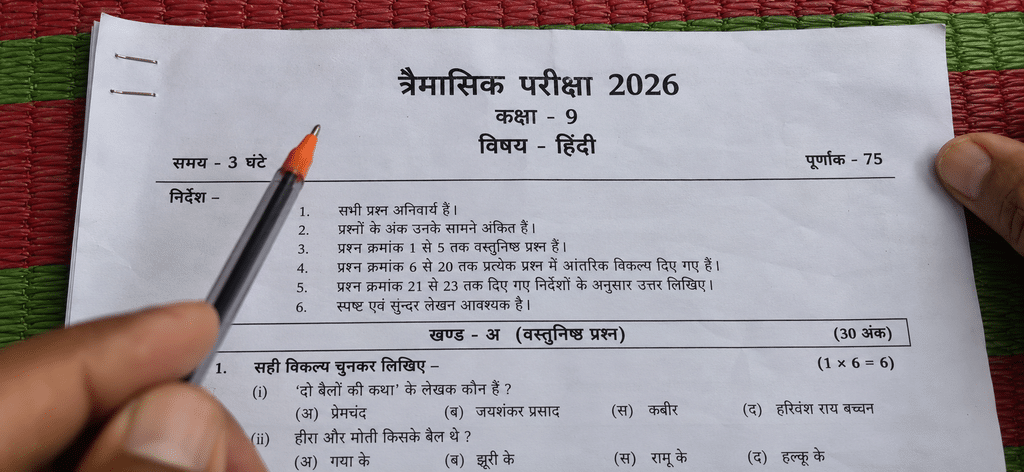 त्रैमासिक परीक्षा 2026
कक्षा - 9
विषय - हिंदी
समय - 3 घंटे
पूर्णांक - 75
निर्देश –
1. सभी प्रश्न अनिवार्य हैं।
2. प्रश्नों के अंक उनके सामने अंकित हैं।
3. प्रश्न क्रमांक 1 से 5 तक वस्तुनिष्ठ प्रश्न हैं।
4. प्रश्न क्रमांक 6 से 20 तक प्रत्येक प्रश्न में आंतरिक विकल्प दिए गए हैं।
5. प्रश्न क्रमांक 21 से 23 तक दिए गए निर्देशों के अनुसार उत्तर लिखिए।
6. स्पष्ट एवं सुंन्दर लेखन आवश्यक है।
खण्ड - अ (वस्तुनिष्ठ प्रश्न) (30 अंक)
1. सही विकल्प चुनकर लिखिए – (1 × 6 = 6)
(i) ‘दो बैलों की कथा’ के लेखक कौन हैं ?
(अ) प्रेमचंद (ब) जयशंकर प्रसाद (स) कबीर (द) हरिवंश राय बच्चन
(ii) हीरा और मोती किसके बैल थे ?
(अ) गया के (ब) झूरी के (स) रामू के (द) हल्कू के